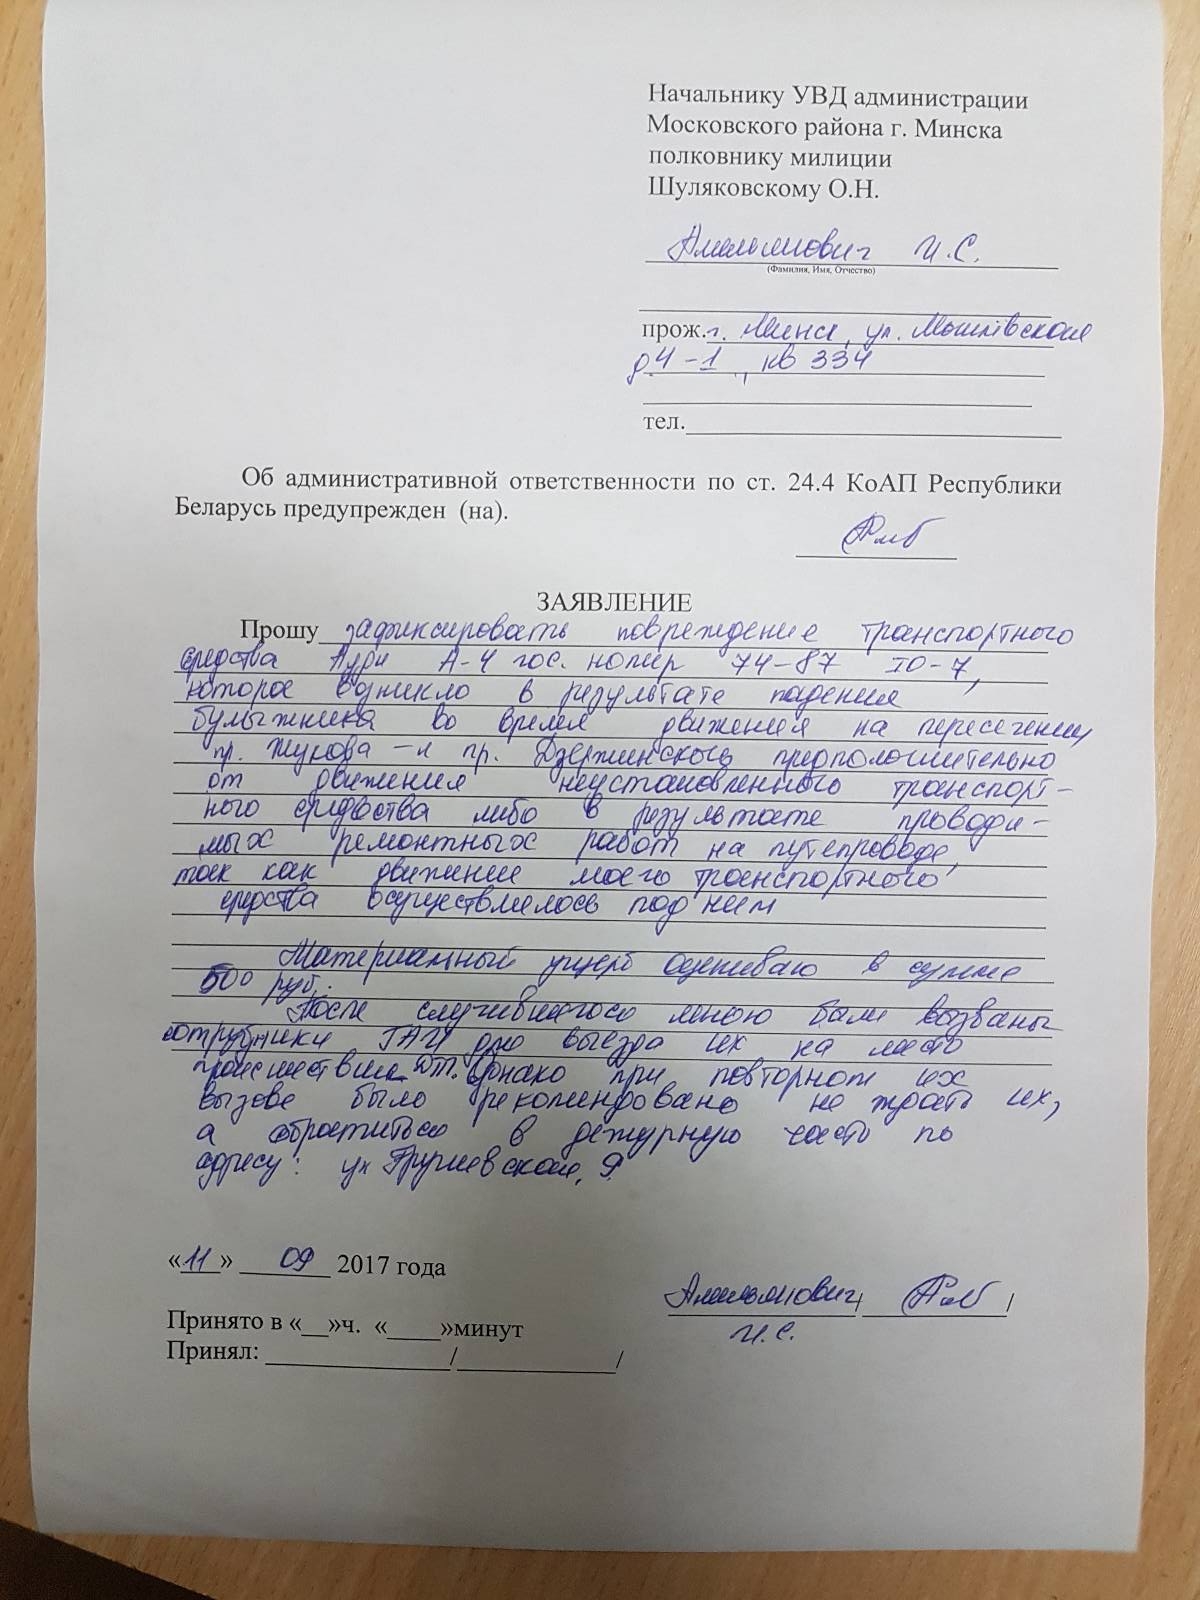 Начальнику УВД администрации
Московского района г. Минска
полковнику милиции
Шуляковскому О.Н.
И.С.
(Фамилия, Имя, Отчество)
прож. г. Минск, ул. Могилёвская
д 4-1, кв 334
тел.
Об административной ответственности по ст. 24.4 КоАП Республики
Беларусь предупрежден (на).
ЗАЯВЛЕНИЕ
Прошу зафиксировать повреждение транспортного
средства Ауди А-4 гос. номер 74-87 IO-7,
которое возникло в результате падения
булыжника во время движения на пересечении
пр. Жукова - и пр. Дзержинского, предположительно
от движения неустановленного транспорт-
ного средства либо в результате проводи-
мых ремонтных работ на путепроводе,
так как движение моего транспортного
средства осуществлялось под ним
Материальный ущерб оцениваю в сумме
500 руб.
После случившегося мною были вызваны
сотрудники ГАИ для выезда их на место
происшествия. Однако при повторном их
вызове было рекомендовано не ждать их,
а обратиться в дежурную часть по
адресу: ул Грушевская, 9.
«11» 09 2017 года
/ /
И.С.
Принято в «__»ч. «____»минут
Принял: / /